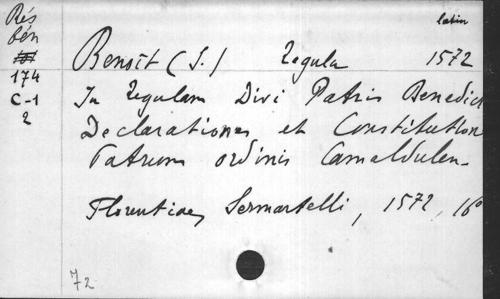 Rés
bén
174
C-1
2
latin
Benoît (S.) Regula 1572
In Regulam Divi Patris Benedict
Declarationes et Constitution
Patrum ordinis Camaldulen-
Florentiae, Sermartelli, 1572, 16°
72